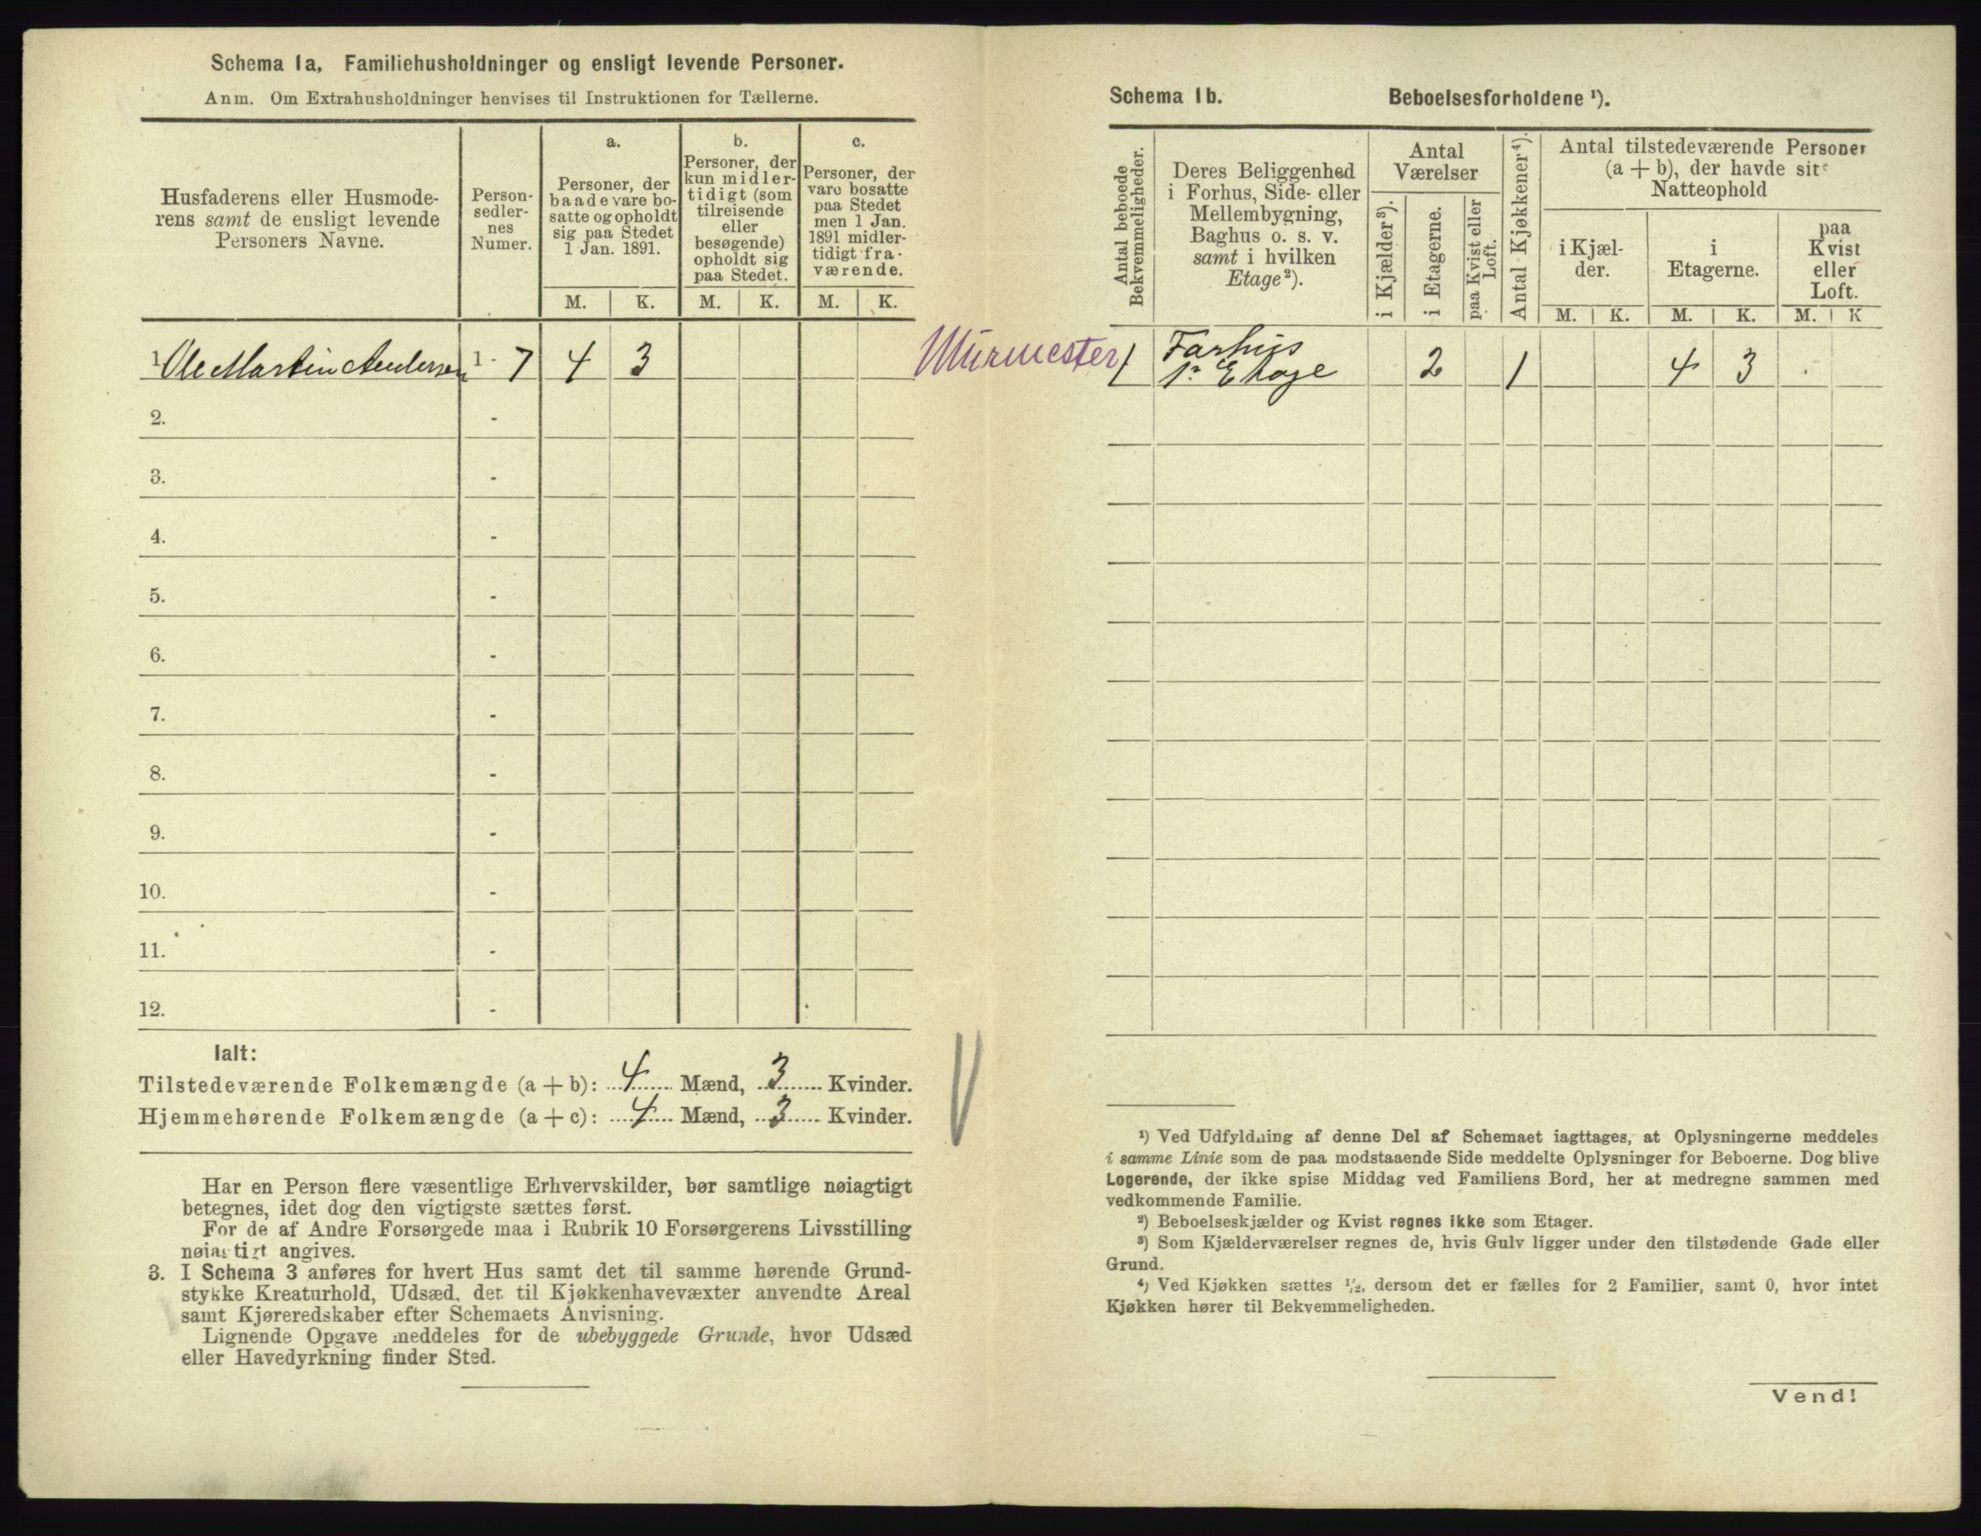 Schema 1a, Familiehusholdninger og ensligt levende Personer.
Anm. Om Extrahusholdninger henvises til Instruktionen for Tællerne.
Husfaderens eller Husmode-
rens samt de ensligt levende
Personers Navne.
Person-
sedler-
nes
Numer.
a.
Personer, der
baade vare bo-
satte og opholdt
sig paa Stedet
1 Jan. 1891.
b.
Personer, der
kun midler-
tidigt (som
tilreisende
eller
besøgende)
opholdt sig
paa Stedet.
c.
Personer, der
vare bosatte
paa Stedet
men 1 Jan.
1891 midler-
tidigt fra-
værende.
M. K. M. K. M. K.
1 Ole Martin Andersen 1 - 7 4 3 Mürmester
2. -
3. -
4. -
5. -
6. -
7. -
8. -
9. -
10. -
11. -
12. -
Ialt:
Tilstedeværende Folkemængde (a + b): 4 Mænd, 3 Kvinder.
Hjemmehørende Folkemængde (a + c): 4 Mænd, 3 Kvinder.
Har en Person flere væsentlige Erhvervskilder, bør samtlige nøiagtigt
betegnes, idet dog den vigtigste sættes først.
For de af Andre Forsørgede maa i Rubrik 10 Forsørgerens Livsstilling
nøiagtigt angives.
3. I Schema 3 anføres for hvert Hus samt det til samme hørende Grund-
stykke Kreaturhold, Udsæd, det til Kjøkkenhavevæxter anvendte Areal
samt Kjøreredskaber efter Schemaets Anvisning.
Lignende Opgave meddeles for de ubebyggede Grunde, hvor Udsæd
eller Havedyrkning finder Sted.
Schema 1b. Beboelsesforholdene ¹).
Antal beboede
Bekvemmeligheder.
Deres Beliggenhed
i Forhus, Side- eller
Mellembygning,
Baghus o. s. v.
samt i hvilken
Etage²).
Antal
Værelser
i Kjælder³).
i Etagerne.
paa Kvist eller
Loft.
Antal Kjøkkener⁴).
Antal tilstedeværende Personer
(a + b), der havde sit
Natteophold
i Kjæl-
der.
i
Etagerne.
paa
Kvist
eller
Loft.
M. K. M. K. M. K
1 Forhus
1ª Etage 2 1 4 3
¹) Ved Udfyldning af denne Del af Schemaet iagttages, at Oplysningerne meddeles
i samme Linie som de paa modstaaende Side meddelte Oplysninger for Beboerne. Dog blive
Logerende, der ikke spise Middag ved Familiens Bord, her at medregne sammen med
vedkommende Familie.
²) Beboelseskjælder og Kvist regnes ikke som Etager.
³) Som Kjælderværelser regnes de, hvis Gulv ligger under den tilstødende Gade eller
Grund.
⁴) Ved Kjøkken sættes ½, dersom det er fælles for 2 Familier, samt 0, hvor intet
Kjøkken hører til Bekvemmeligheden.
Vend!